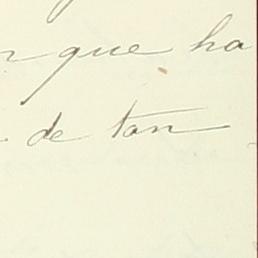 que ha
de tan